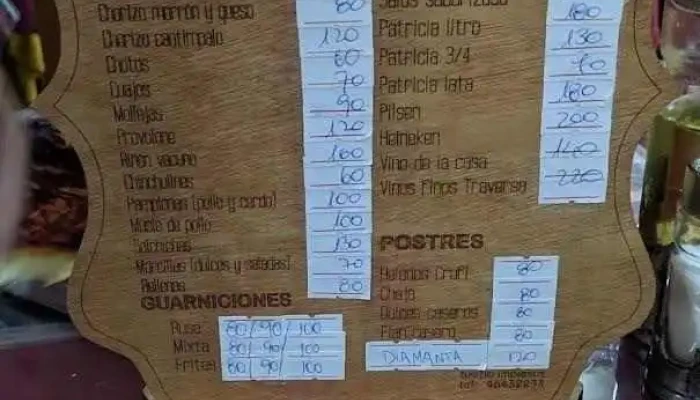 Chorizo morrón y queso 80
Chorizo cantimpalo 120
Chotos 60
Cuajos 70
Mollejas 90
Provolone 120
Riñon vacuno 100
Chinchulines 60
Pamplonas (pollo y cerdo) 100
Muslo de pollo 100
Salchichas 130
Morcillas (dulces y saladas) 70
Rellenas 80
GUARNICIONES
Rusa 80/90/100
Mixta 80/90/100
Fritas 80/90/100
180
Patricia litro 130
Patricia 3/4
Patricia lata 180
Pilsen 200
Heineken 140
Vino de la casa 220
Vinos Finos Traversa
POSTRES
Helados Crufi 80
Chaja 80
Dulces caseros 80
Flan casero 80
DIAMANTA 120